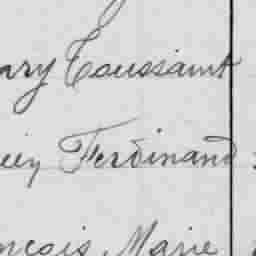 ary Toussaint
Ferdinand
ncois Marie